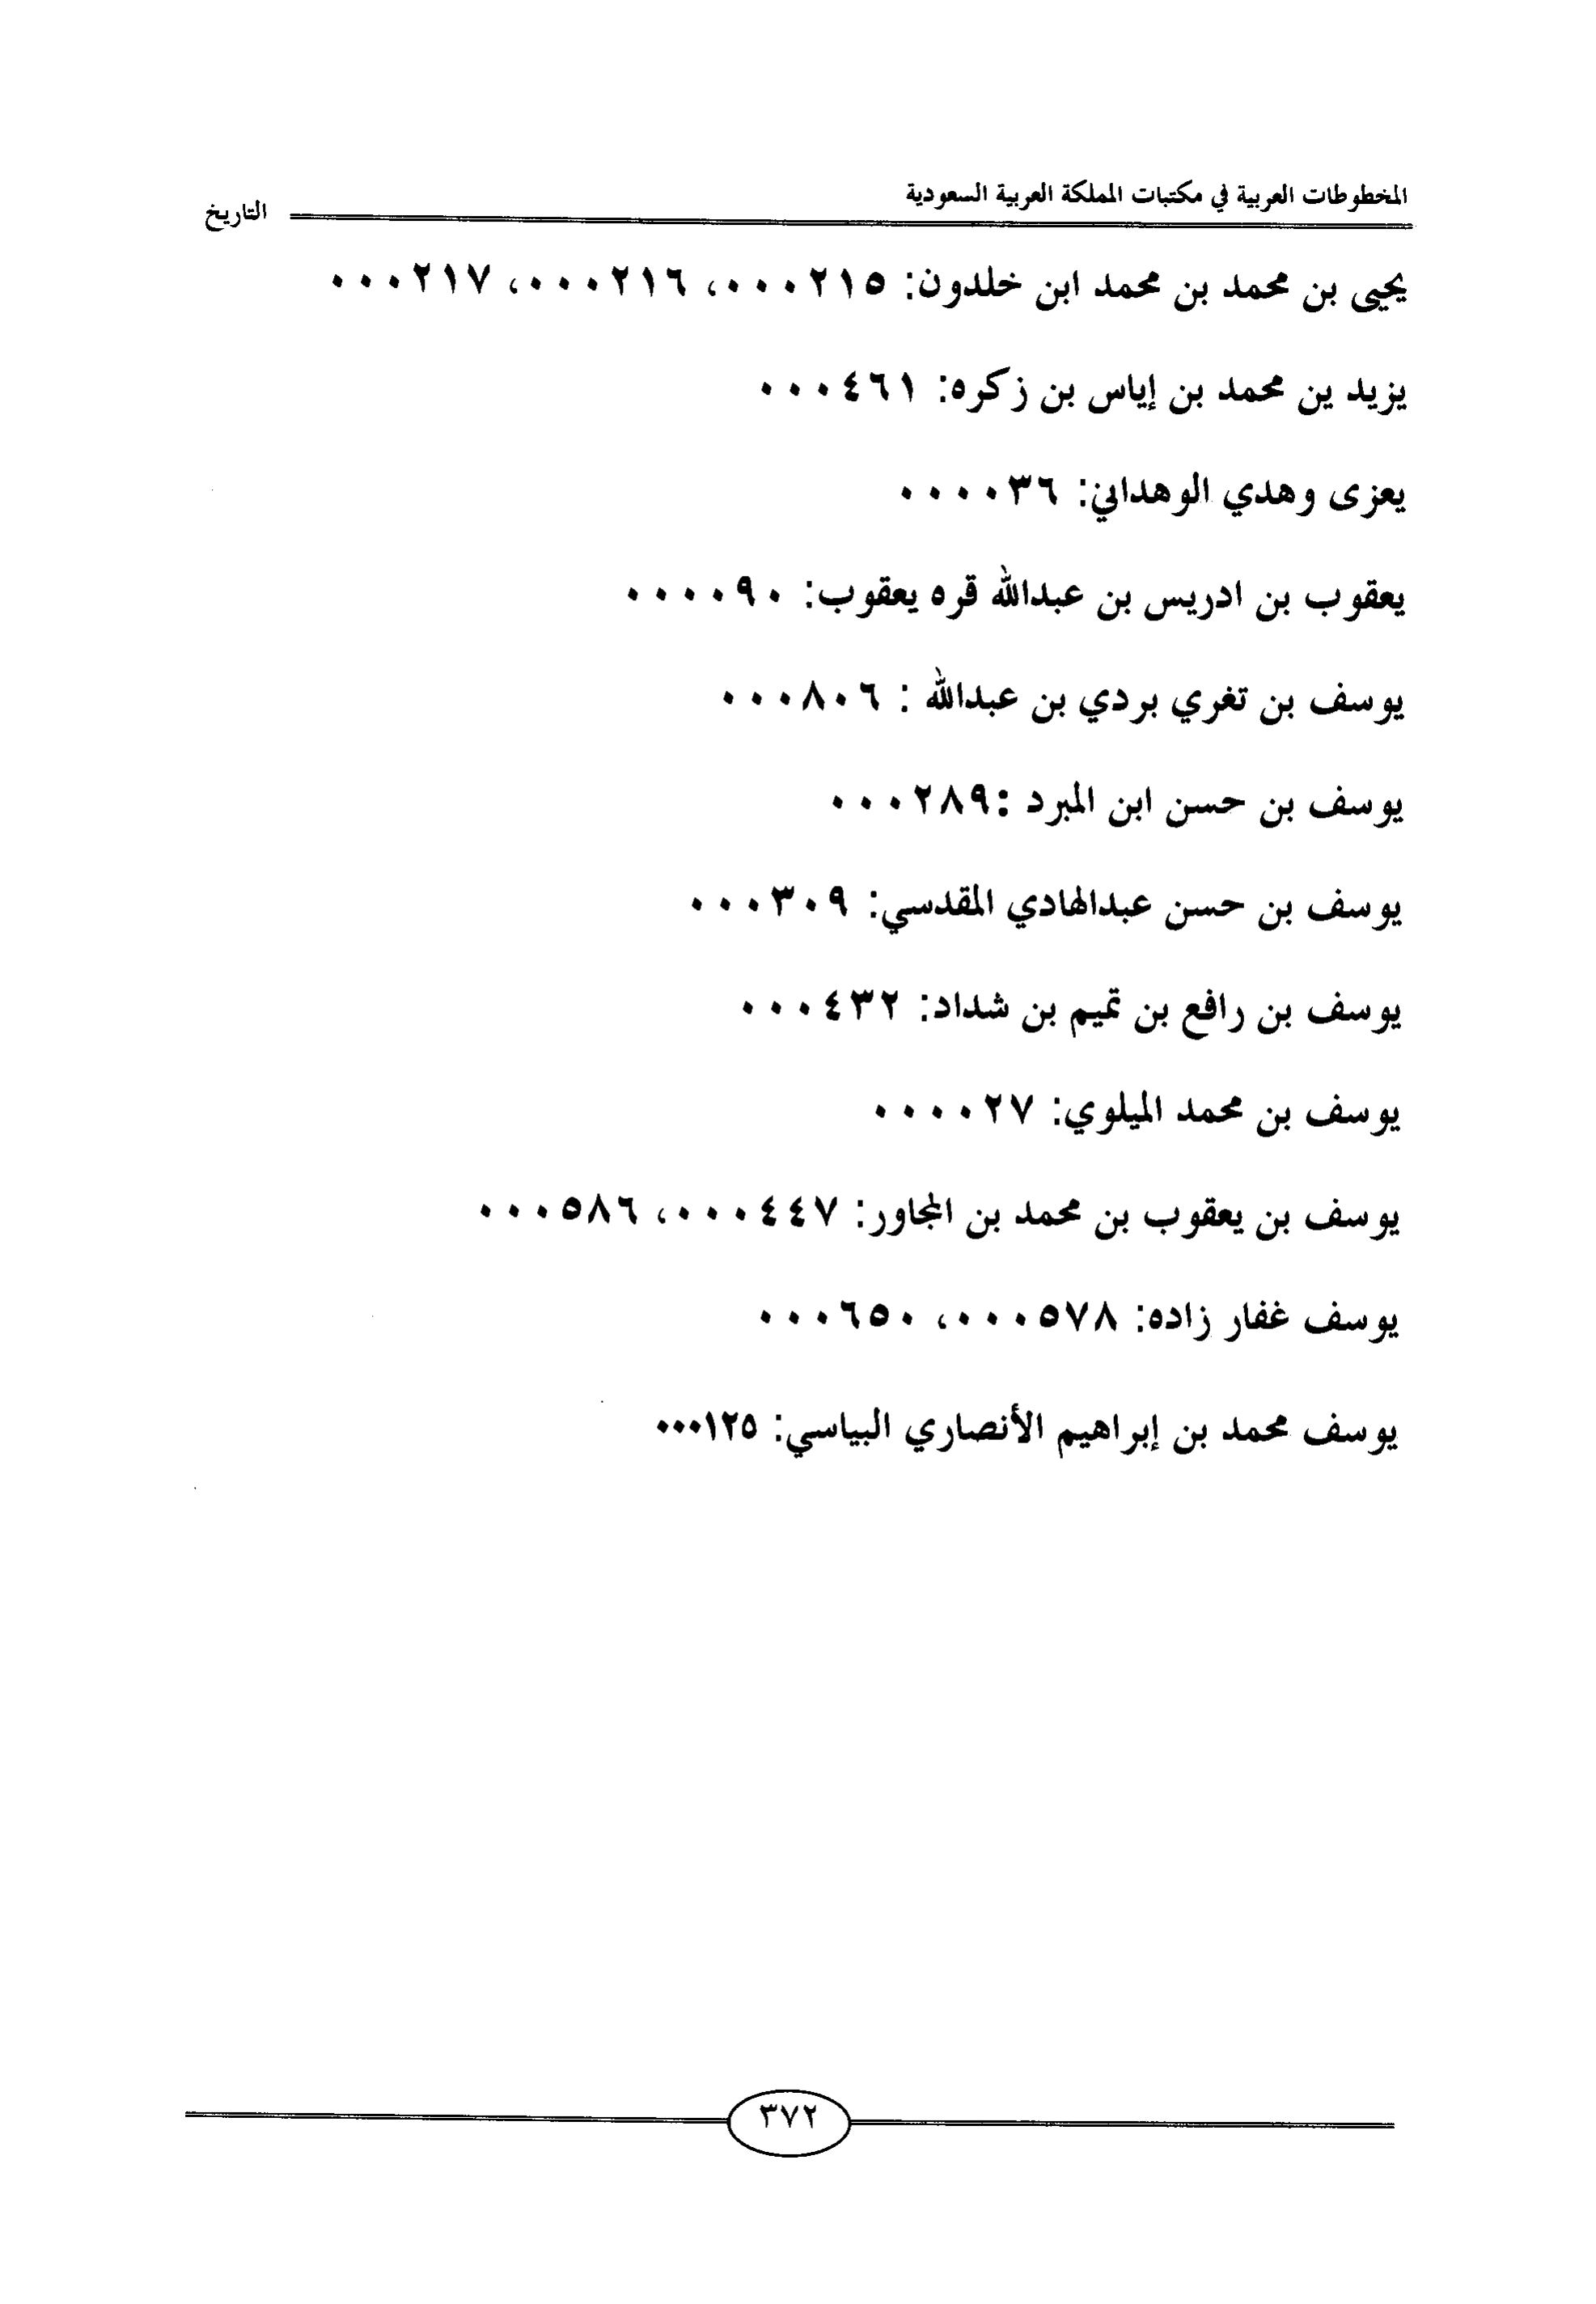 المخطوطات العربية في مكتبات المملكة العربية السعودية
التاريخ
يحيى بن محمد بن محمد ابن خلدون: ٠٠٠٢١٥، ٠٠٠٢١٦، ٠٠٠٢١٧
يزيد ين محمد بن إياس بن زكره: ٠٠٠٤٦١
يعزى وهدي الوهداني: ٠٠٠٠٣٦
يعقوب بن ادريس بن عبدالله قره يعقوب: ٠٠٠٠٩٠
يوسف بن تغري بردي بن عبدالله : ٠٠٠٨٠٦
يوسف بن حسن ابن المبرد :٠٠٠٢٨٩
يوسف بن حسن عبدالهادي المقدسي: ٠٠٠٣٠٩
يوسف بن رافع بن تميم بن شداد: ٠٠٠٤٣٢
يوسف بن محمد الميلوي: ٠٠٠٠٢٧
يوسف بن يعقوب بن محمد بن المجاور: ٠٠٠٤٤٧، ٠٠٠٥٨٦
يوسف غفار زاده: ٠٠٠٥٧٨، ٠٠٠٦٥٠
يوسف محمد بن إبراهيم الأنصاري البياسي: ٠٠٠١٢٥
٣٧٢